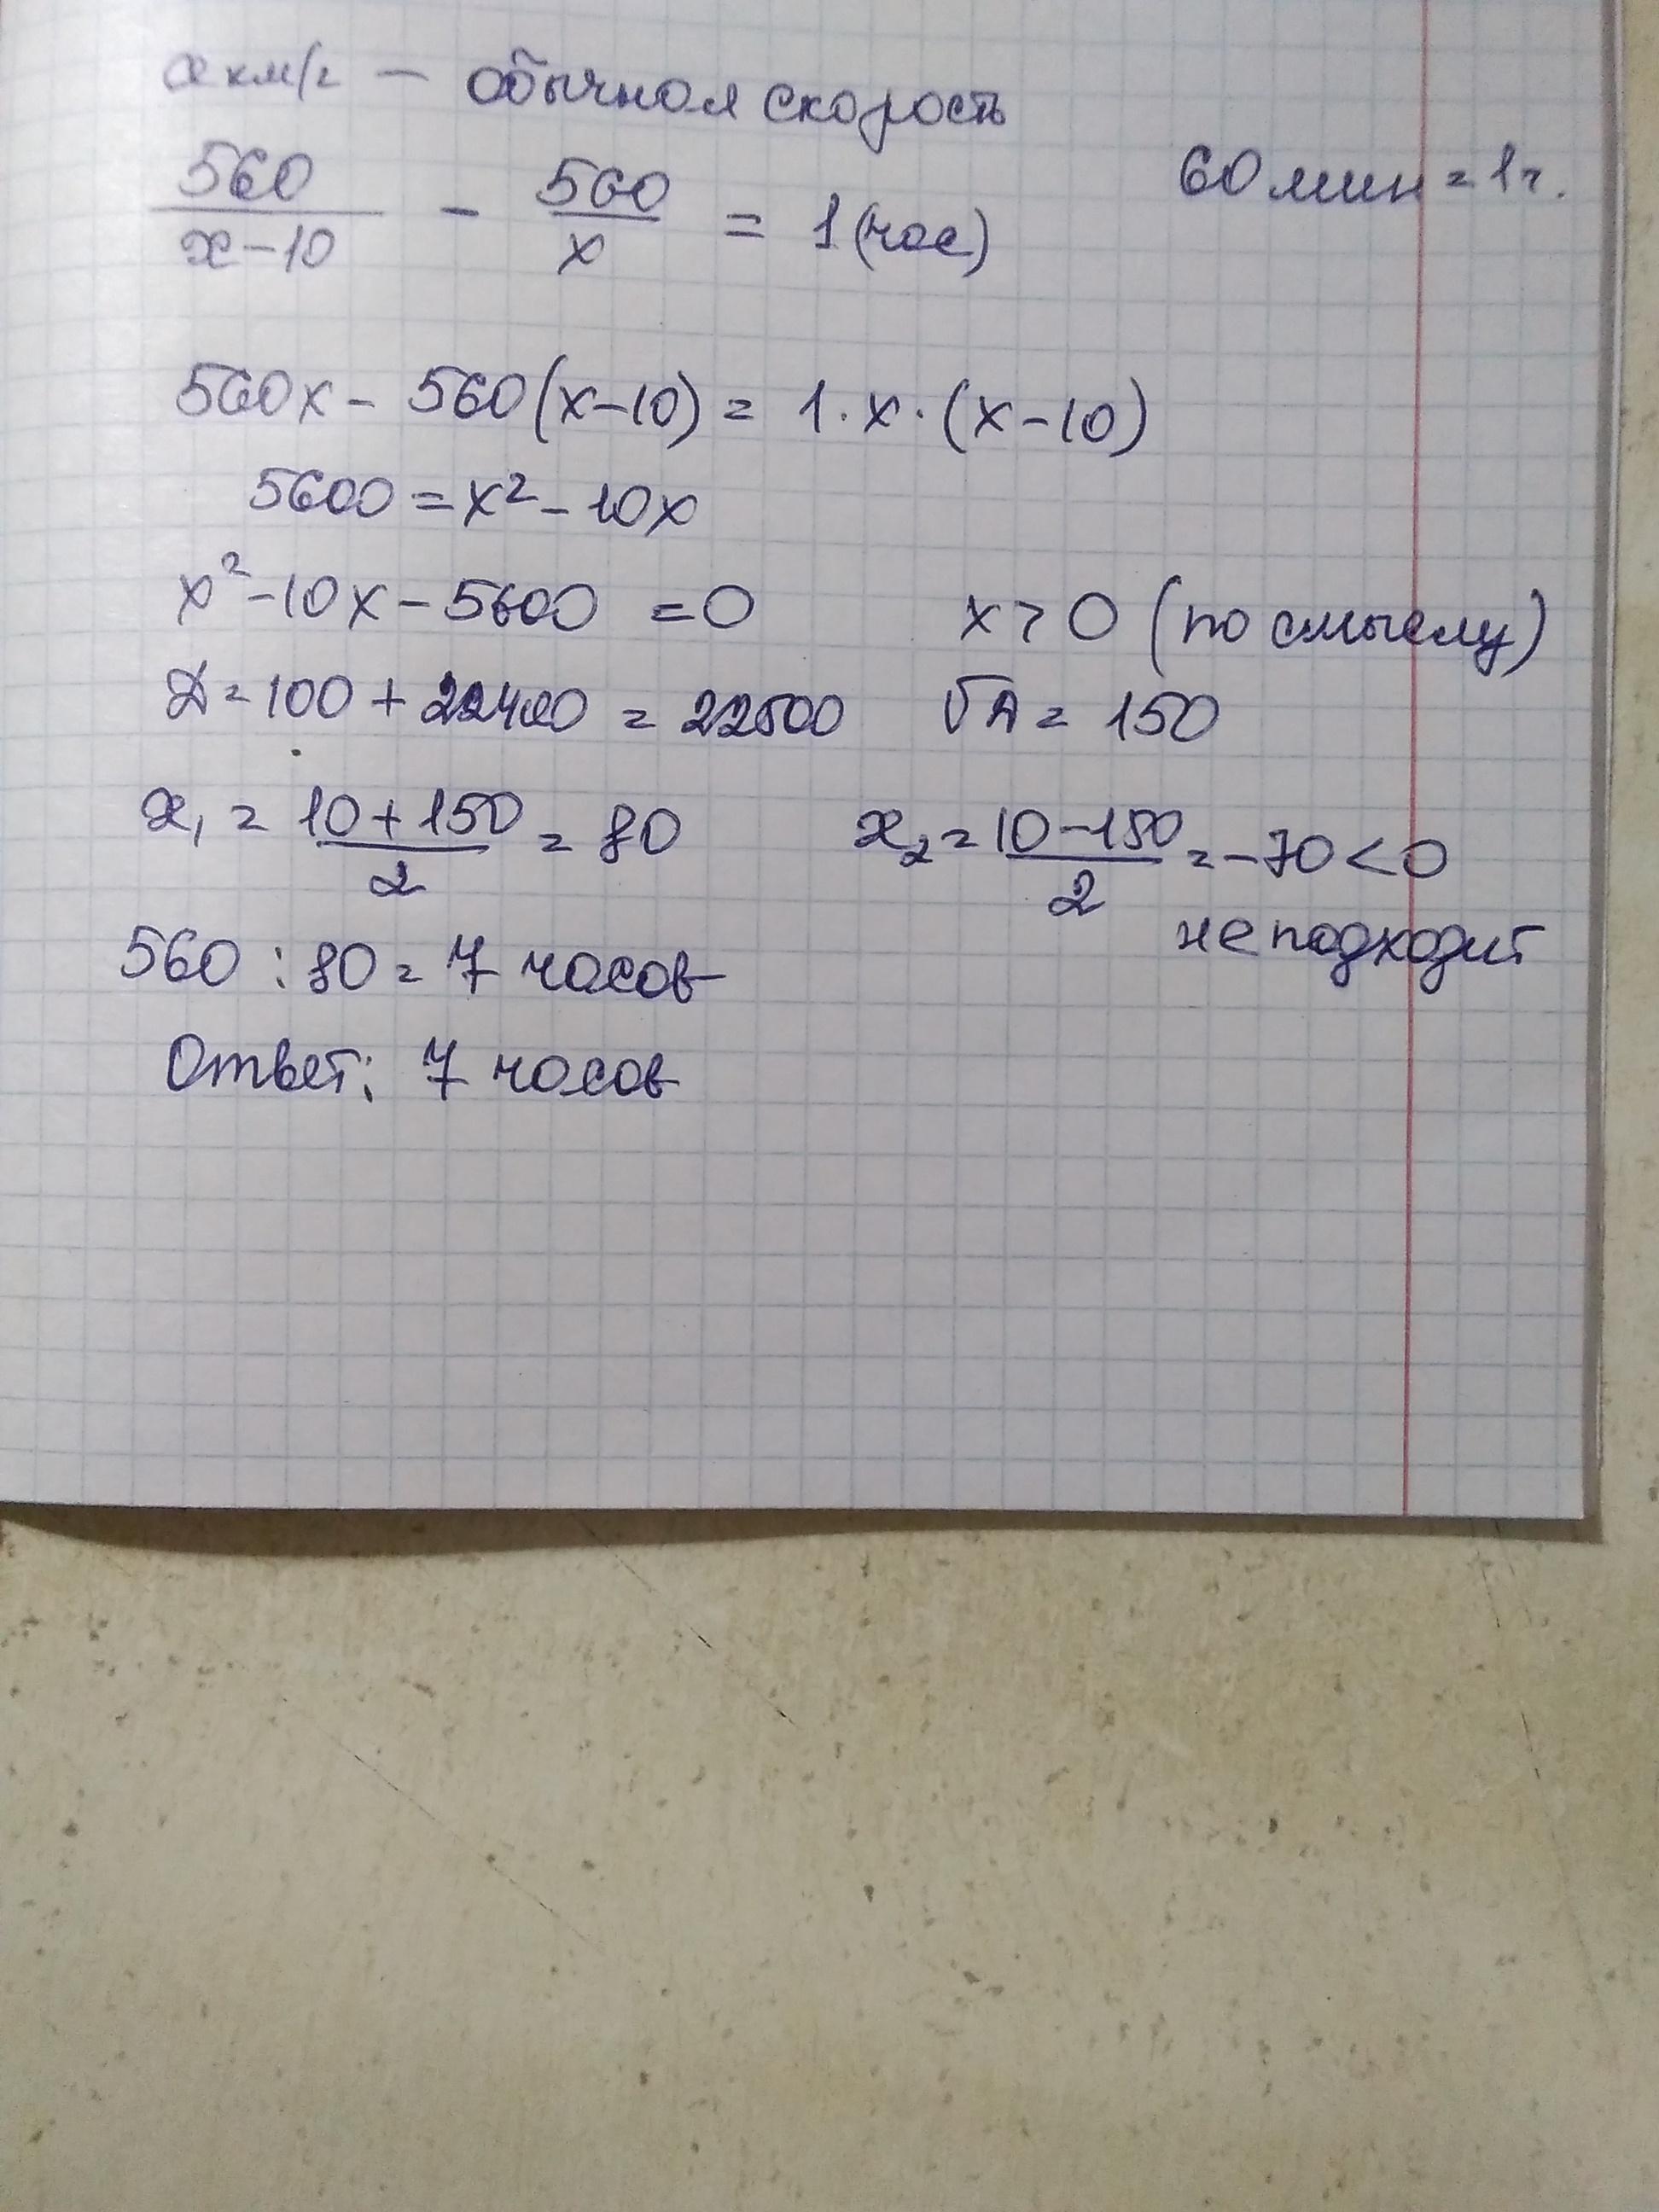 x км/ч – обычная скорость
560/(x-10) - 560/x = 1 (час)
60 мин = 1 ч.
560x - 560(x-10) = 1·x·(x-10)
5600 = x² - 10x
x² - 10x - 5600 = 0
x > 0 (по смыслу)
Д = 100 + 22400 = 22500
√Д = 150
x₁ = (10+150)/2 = 80
x₂ = (10-150)/2 = -70 < 0
не подходит
560 : 80 = 7 часов
Ответ: 7 часов